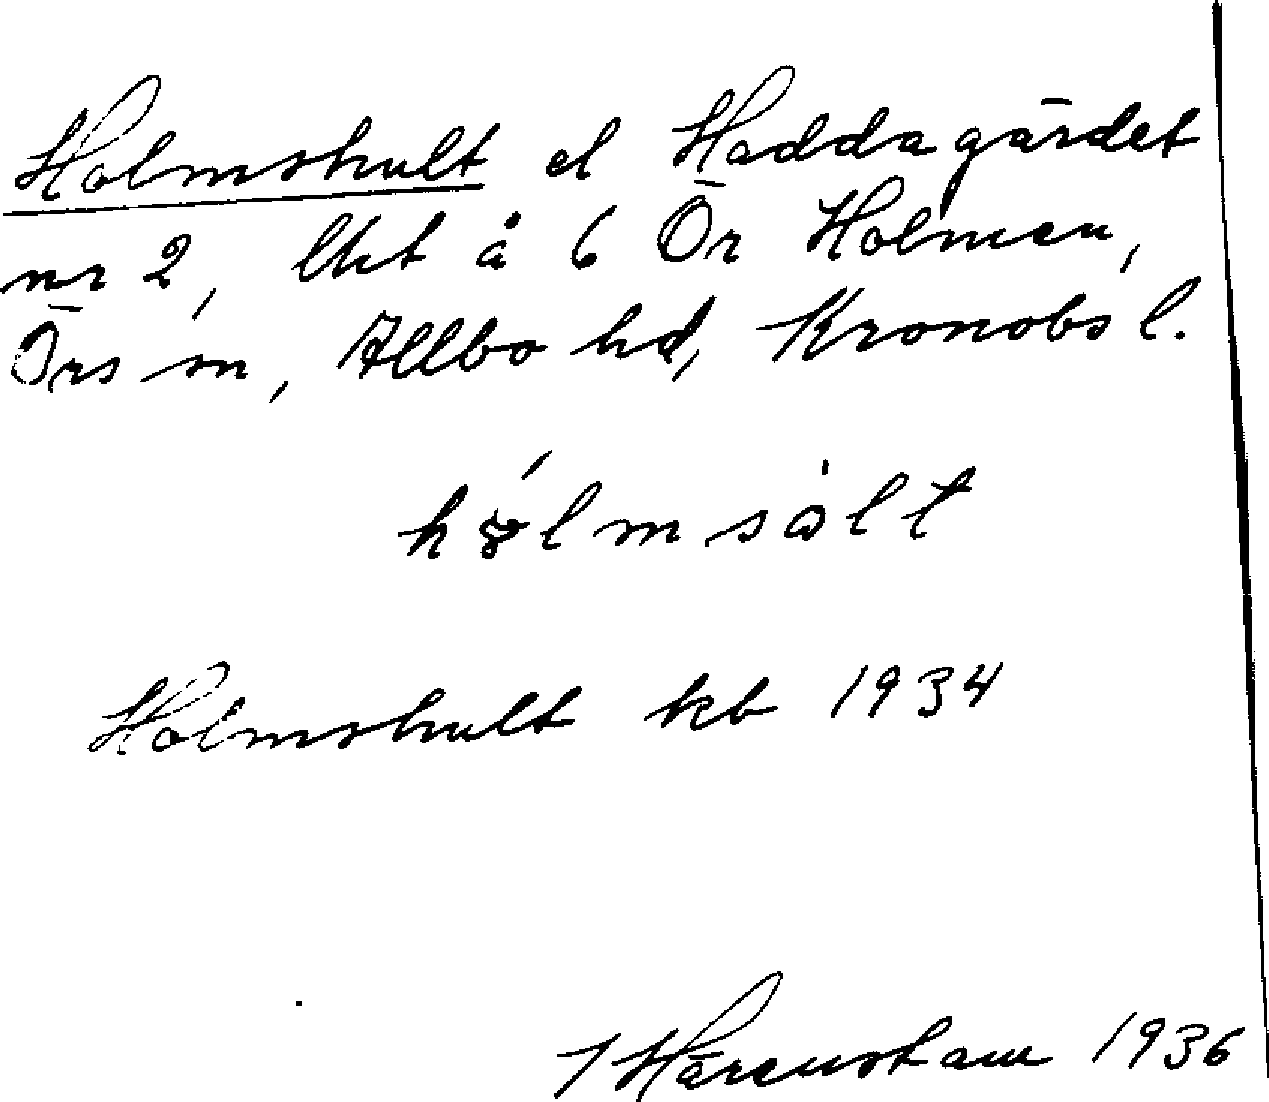 Holmshult el Haddagärdet
nr 2, lht å 6 Ör Holmen,
Örs sn, Allbo hd, Kronobs l.
hólmsàlt
Holmshult kb 1934
1936